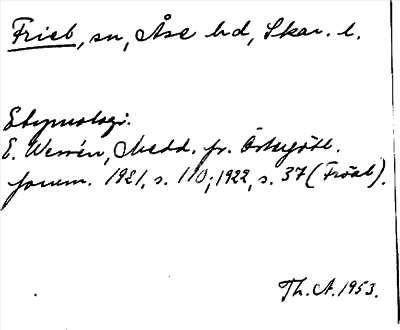 Frieb, sn, Åse hd, Skar. l.
Etymologi.
E. Wessén, Medd. fr. Östergötl.
fornm. 1921, s. 110; 1922, s. 37 (Fröab).
Th. A. 1953.